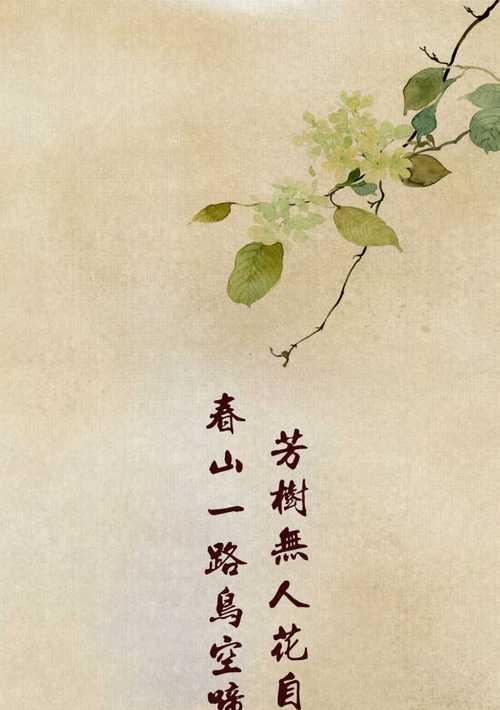 芳樹無人花自
春山一路鳥空啼